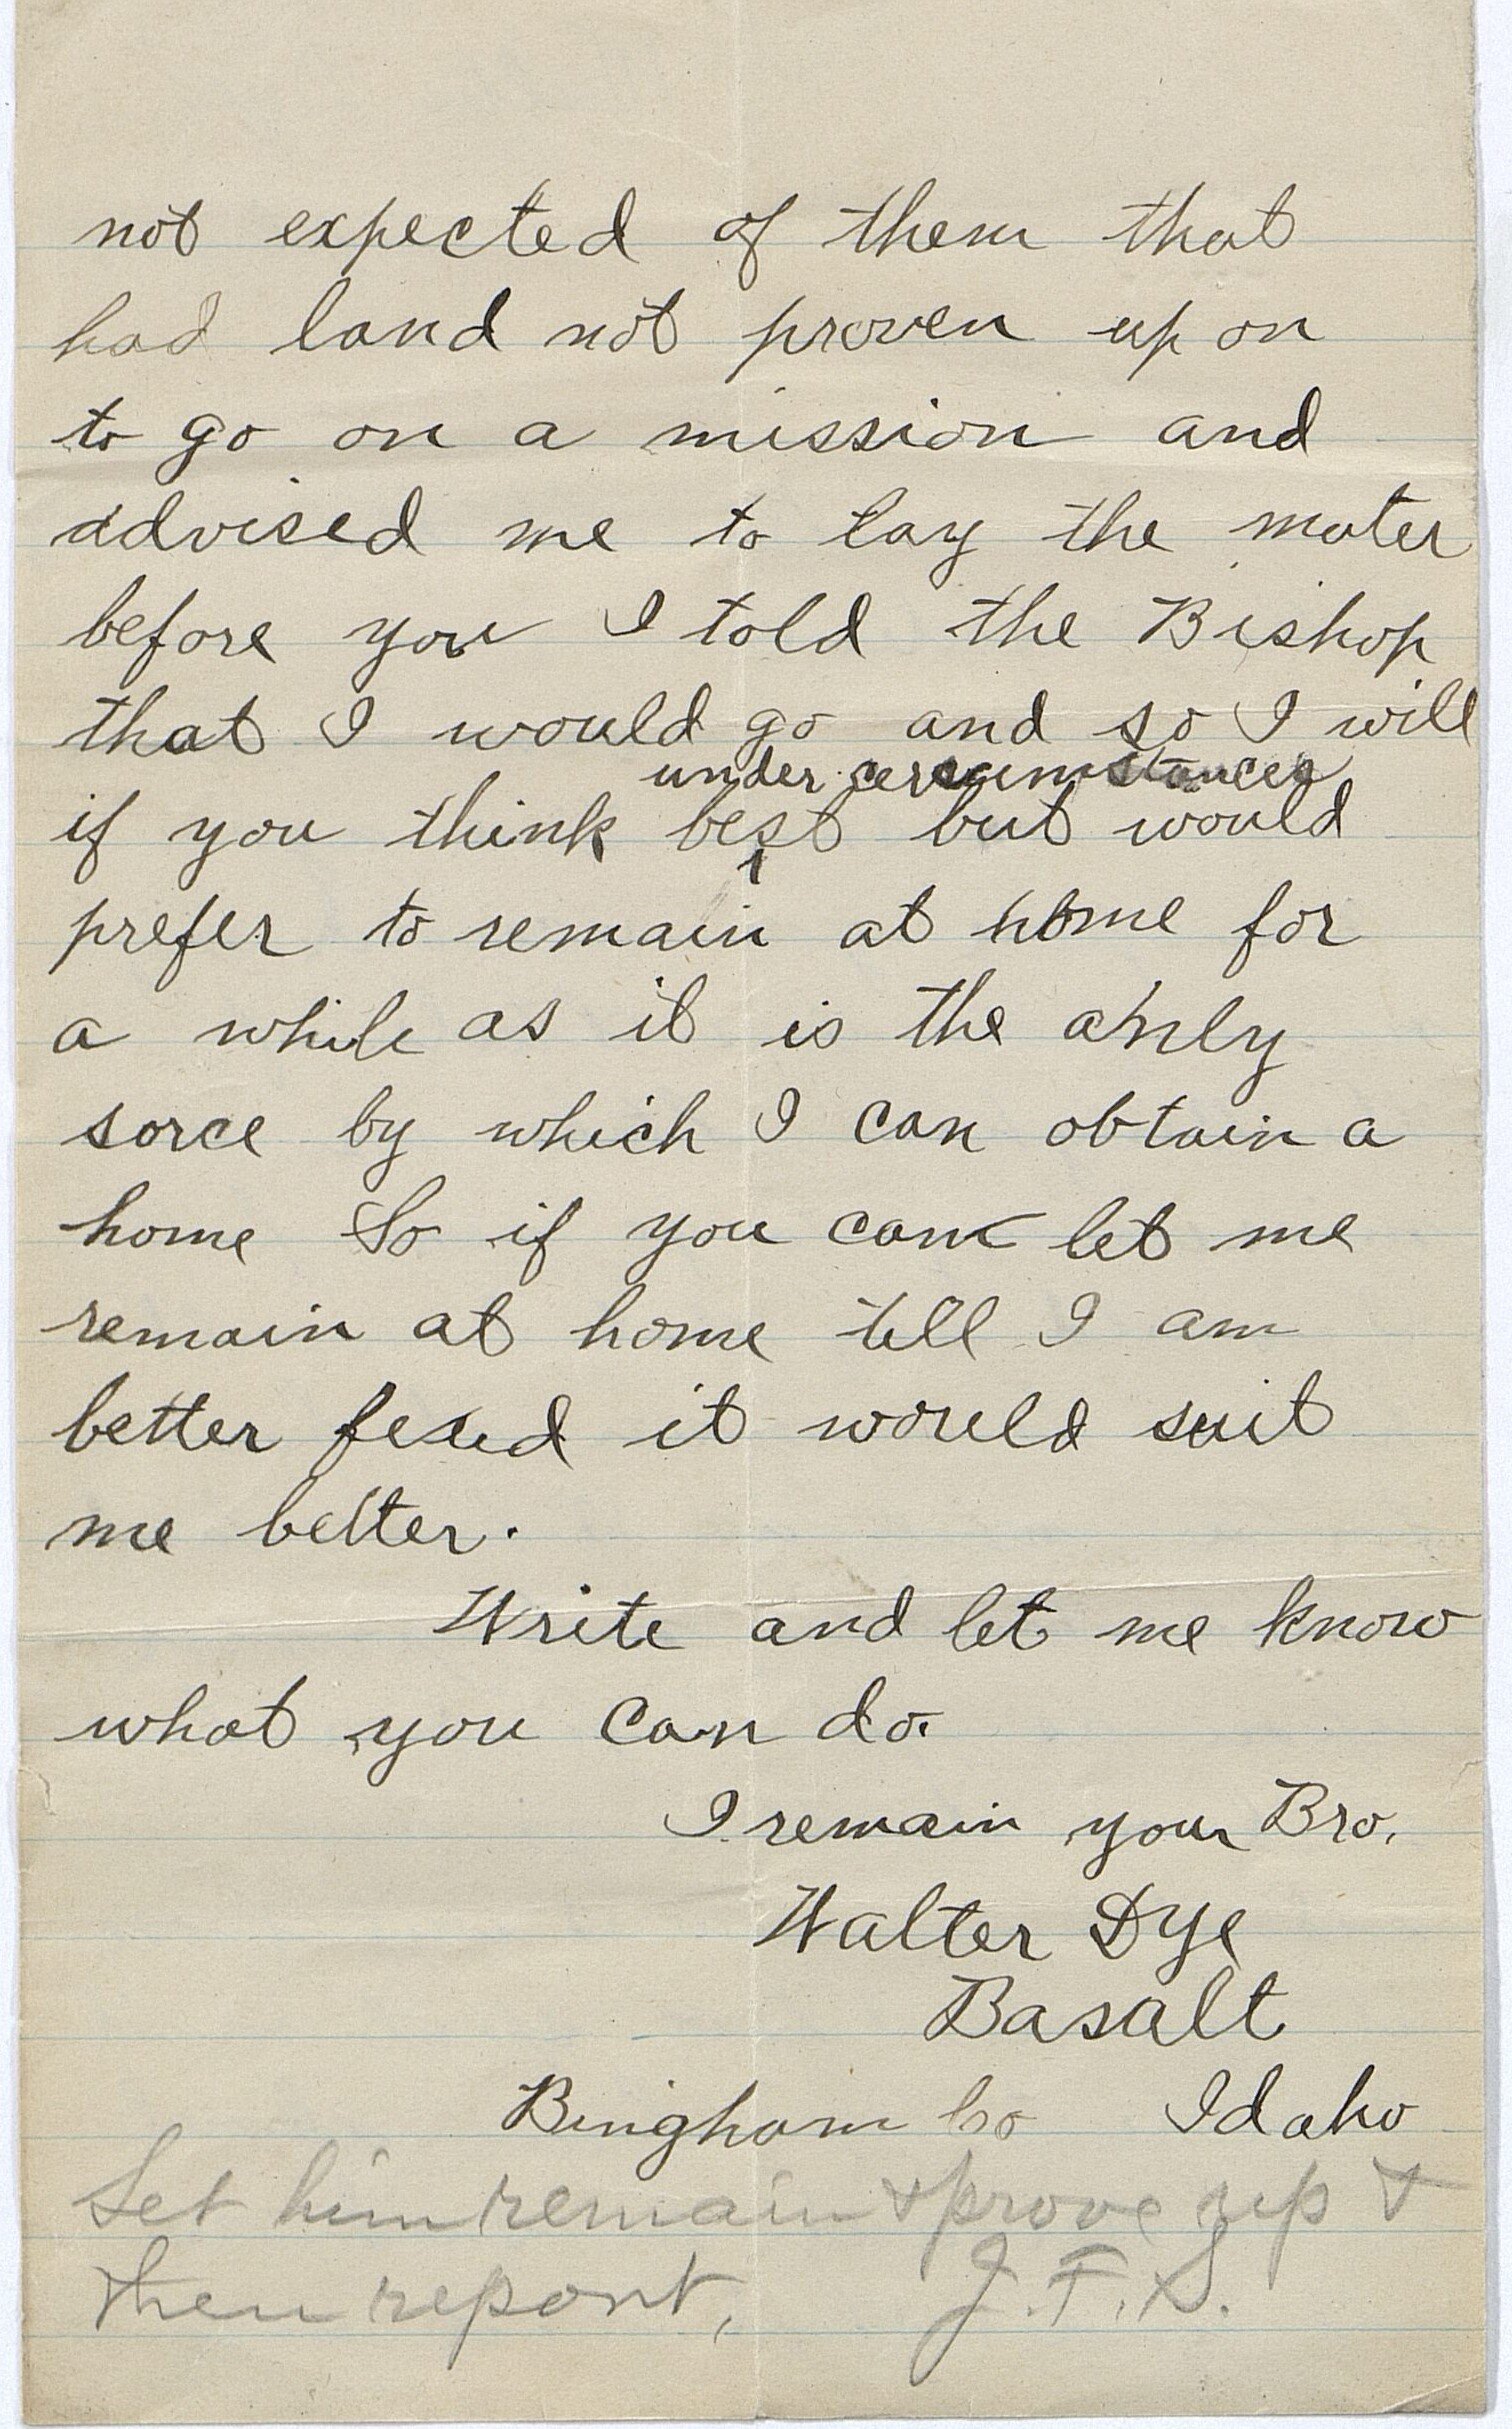 not expected of them that
had land not proven up on
to go on a mission and
advised me to lay the mater
before you I told the Bishop
that I would go and so I will
under cercumstances
if you think best but would
prefer to remain at home for
a while as it is the only
sorce by which I can obtain a
home So if you can let me
remain at home till I am
better fixed it would suit
me better.
Write and let me know
what you can do.
I remain your Bro.
Walter Dye
Basalt
Bingham Co Idaho
Let him remain & prove up &
then report, J.F.S.